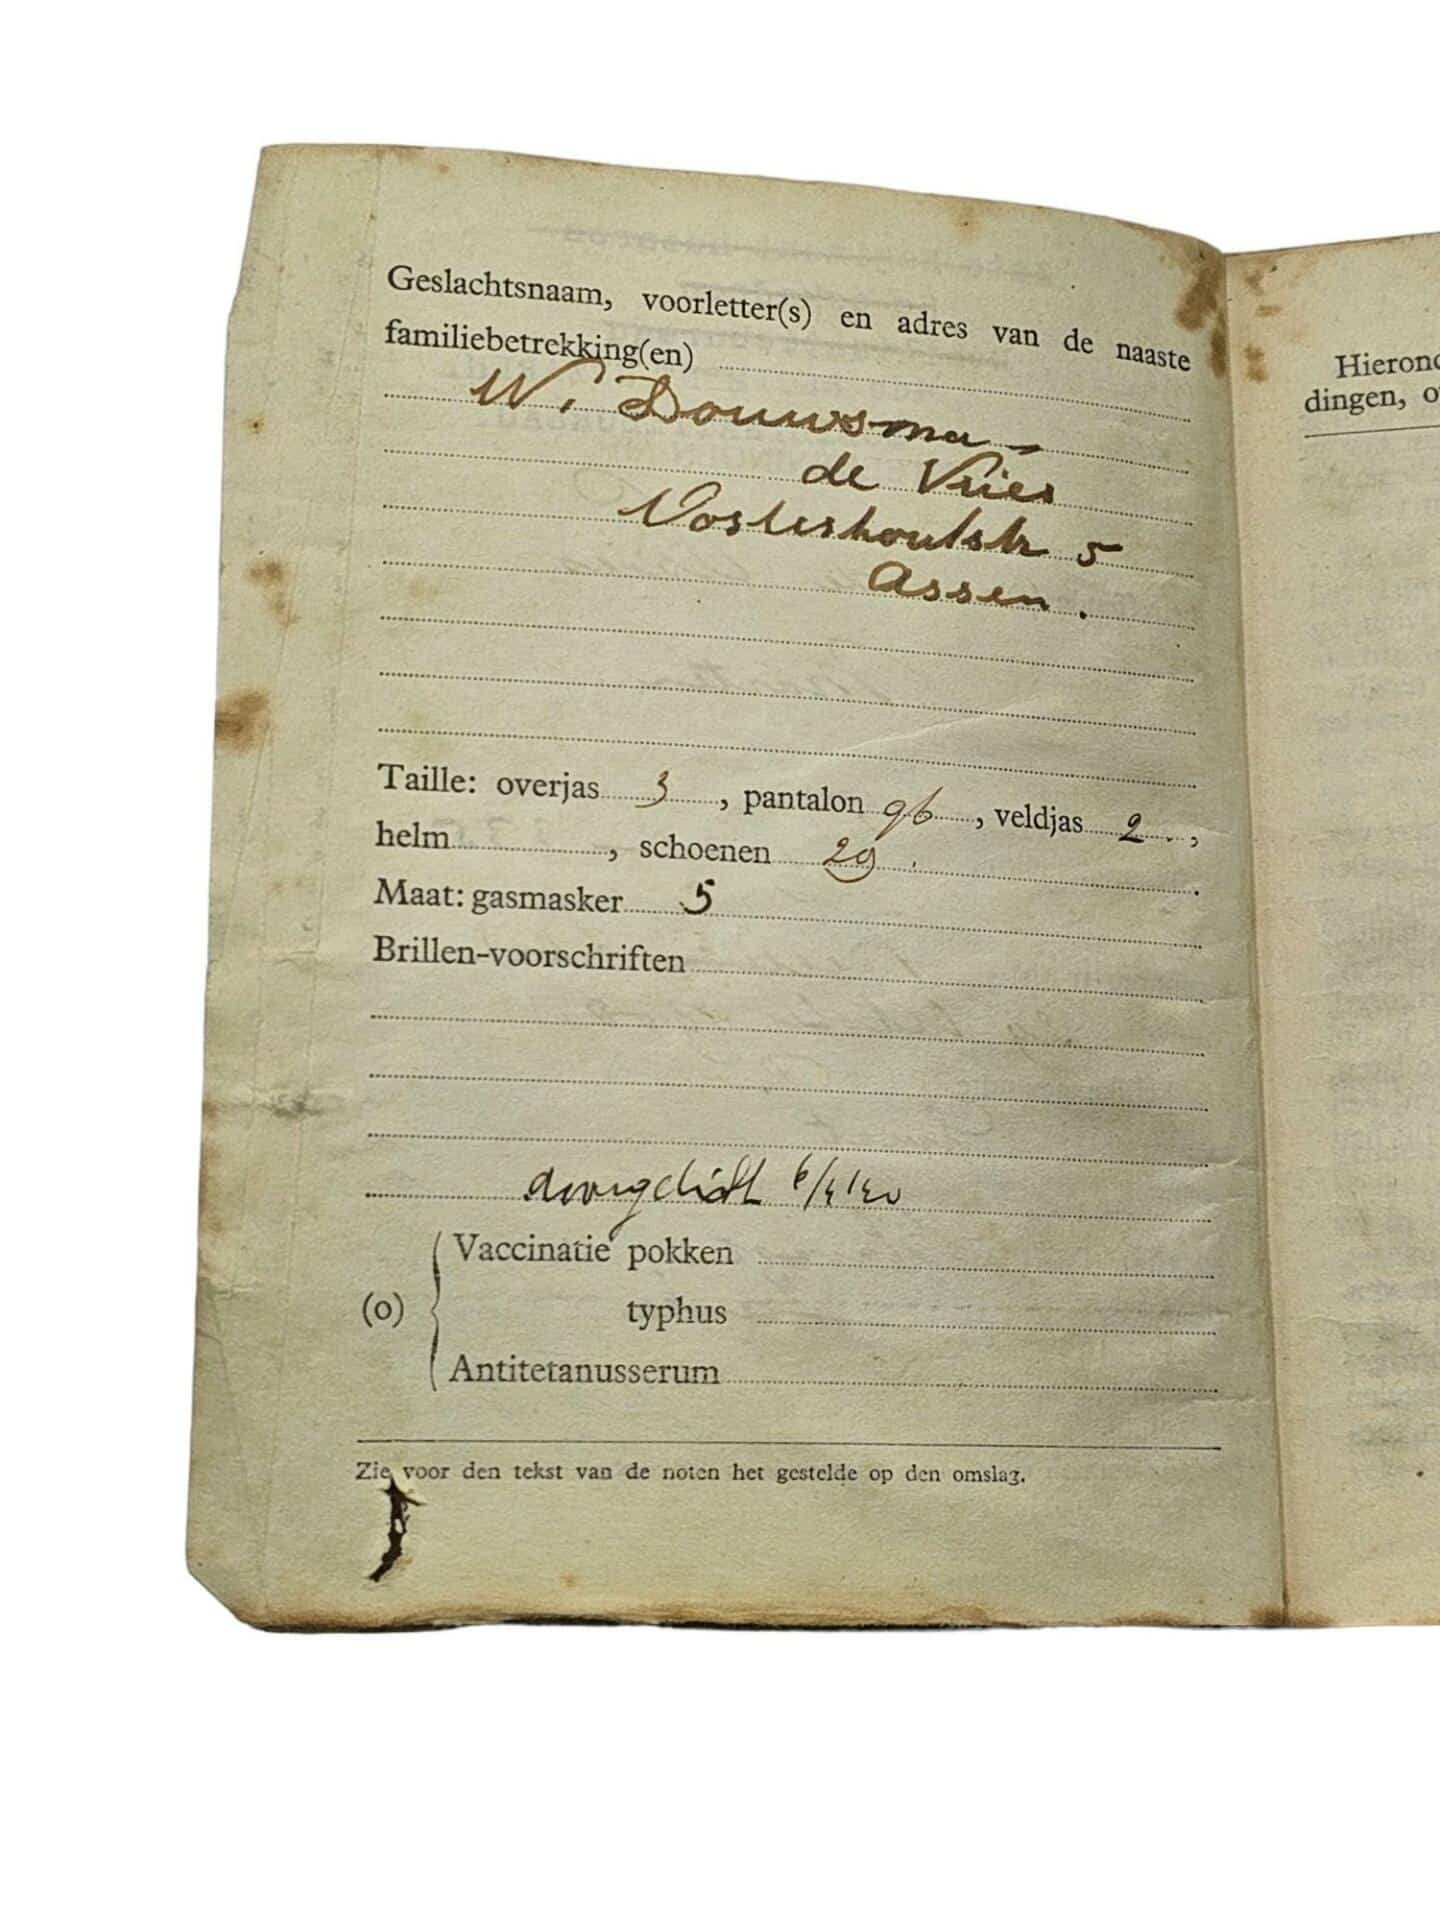 Geslachtsnaam, voorletter(s) en adres van de naaste
familiebetrekking(en)
W. Douwsma -
de Vries
Oosterhoutstr 5
Assen.
Taille: overjas 3, pantalon 96, veldjas 2,
helm, schoenen 29.
Maat: gasmasker 5
Brillen-voorschriften
doorgelicht
Vaccinatie pokken
(o)
typhus
Antitetanusserum
Zie voor den tekst van de noten het gestelde op den omslag.
dingen,